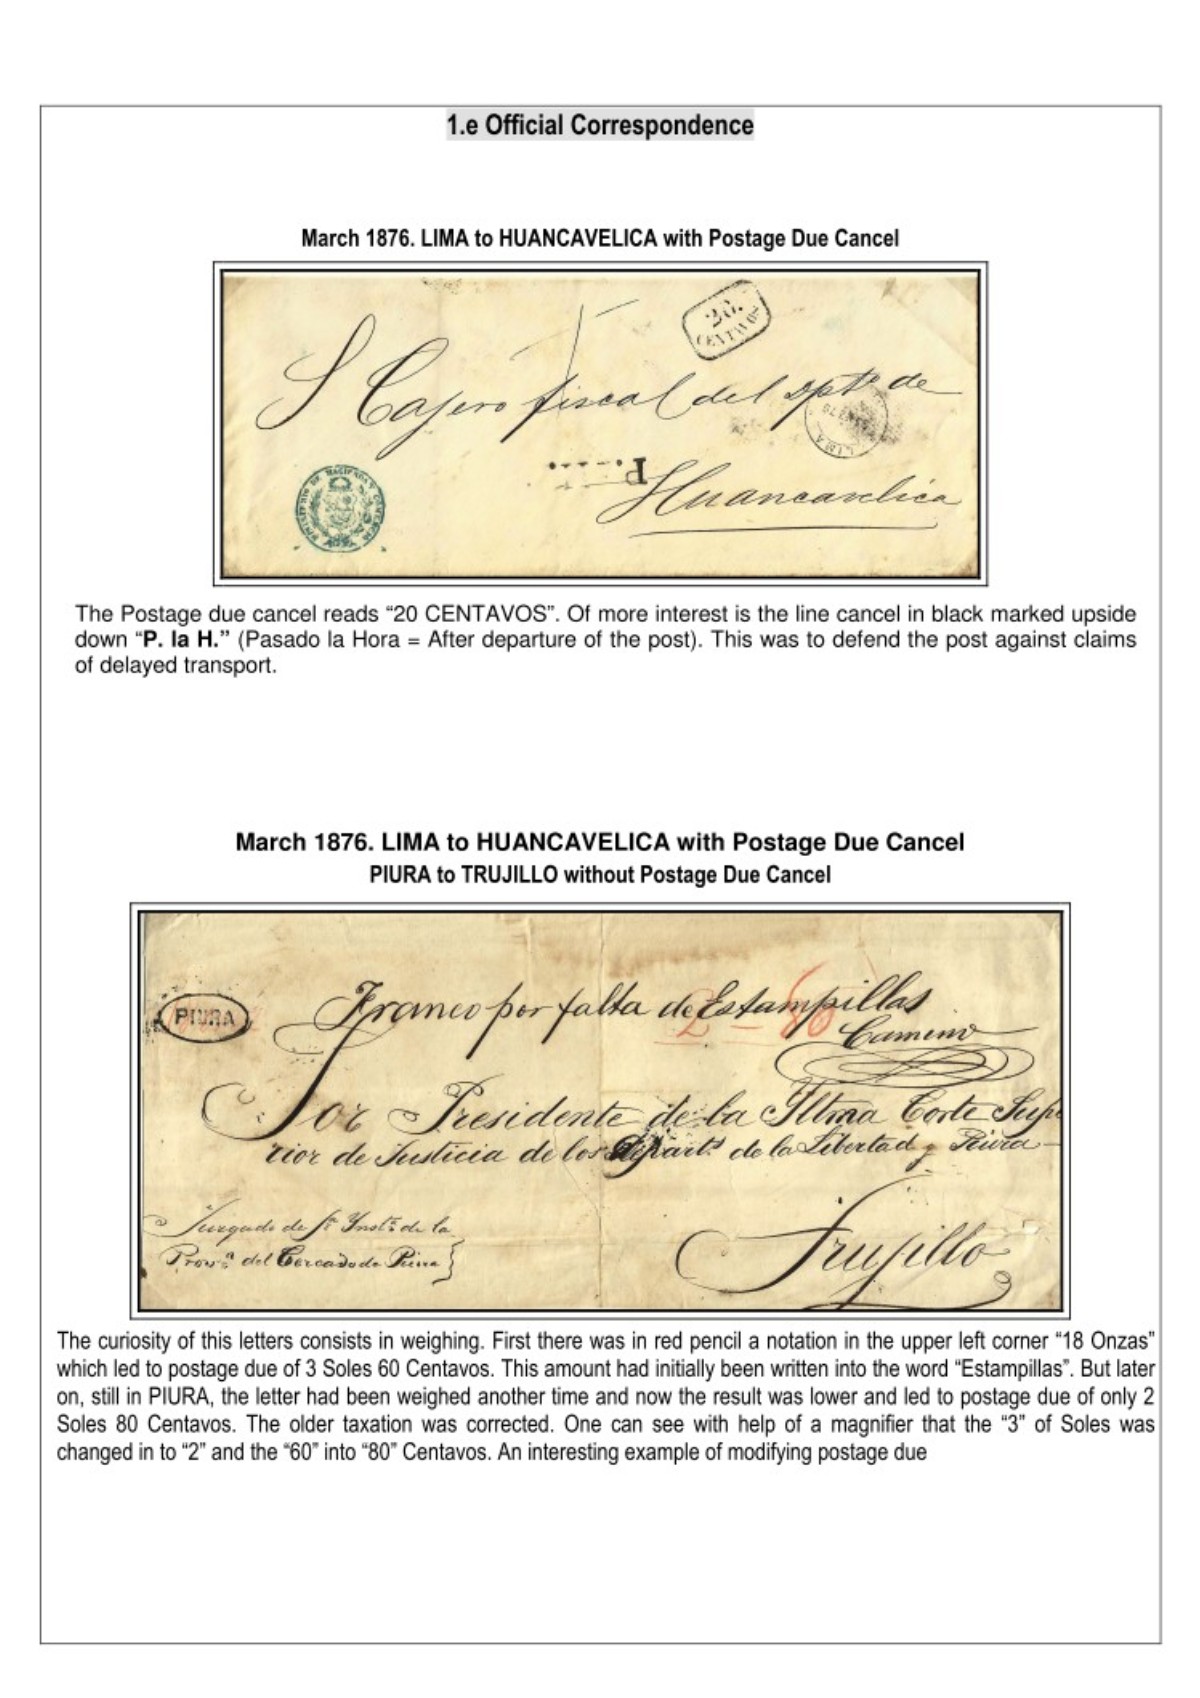 1.e Official Correspondence
March 1876. LIMA to HUANCAVELICA with Postage Due Cancel
20.
CENTAVOS
S Cajero fiscal del Dpto de
LIMA
P
Huancavelica
MINISTERIO DE HACIENDA Y COMERCIO
The Postage due cancel reads “20 CENTAVOS”. Of more interest is the line cancel in black marked upside
down “P. la H.” (Pasado la Hora = After departure of the post). This was to defend the post against claims
of delayed transport.
March 1876. LIMA to HUANCAVELICA with Postage Due Cancel
PIURA to TRUJILLO without Postage Due Cancel
PIURA
Franco por falta de Estampillas
Camino
Sor Presidente de la Iltma Corte Supe
rior de Justicia de los Departs de la Libertad y Piura
Juzgado de Instа de la
Provа del Cercado de Piura
Trujillo
The curiosity of this letters consists in weighing. First there was in red pencil a notation in the upper left corner “18 Onzas”
which led to postage due of 3 Soles 60 Centavos. This amount had initially been written into the word “Estampillas”. But later
on, still in PIURA, the letter had been weighed another time and now the result was lower and led to postage due of only 2
Soles 80 Centavos. The older taxation was corrected. One can see with help of a magnifier that the “3” of Soles was
changed in to “2” and the “60” into “80” Centavos. An interesting example of modifying postage due